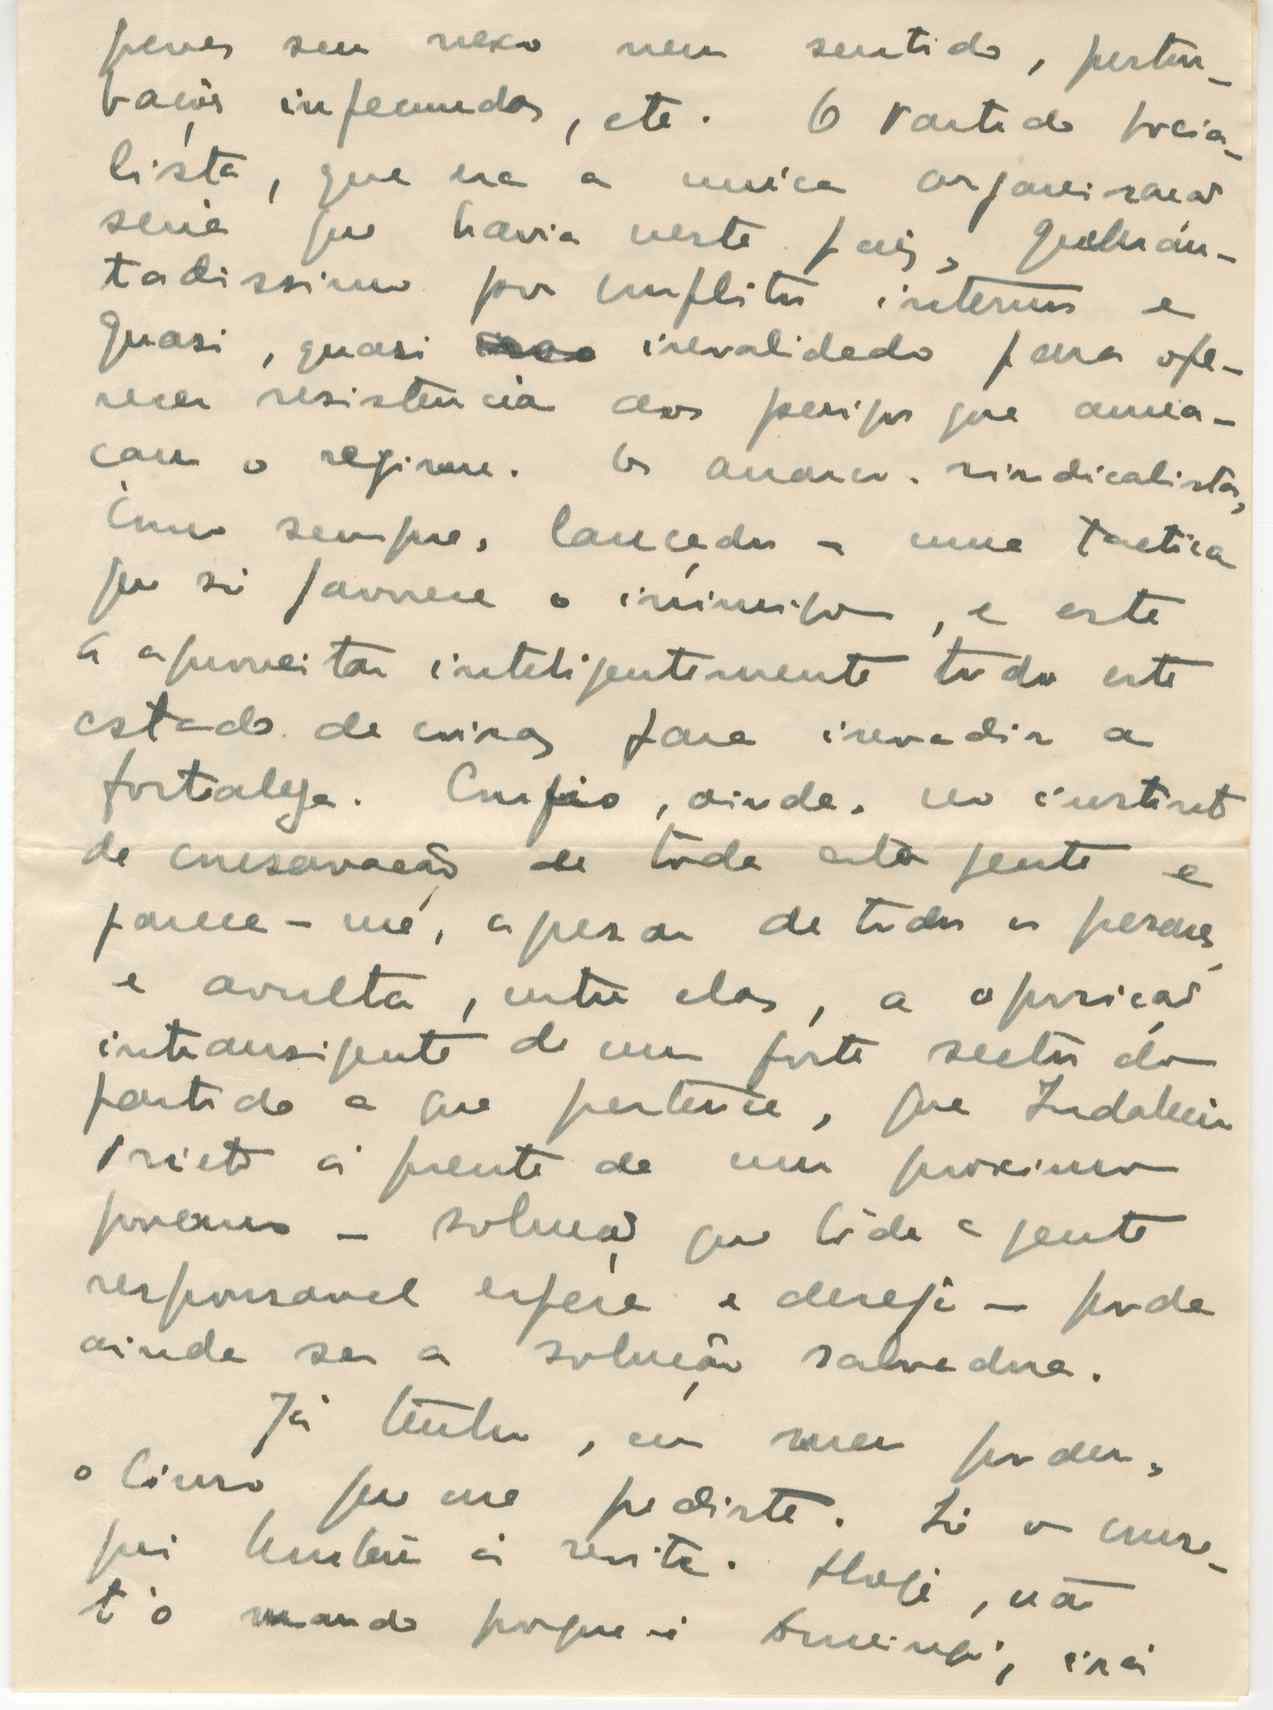 peves sem nexo nem sentido, pertur-
bações infecundas, etc. O Partido Socia-
lista, que era a unica organisação
séria que havia neste país, quebran-
tadissimo por conflitos internos e
quasi, quasi invalidado para ofe-
recer resistencia aos perigos que amea-
çam o regimen. Os anarco-sindicalistas,
como sempre, lançados a uma tactica
que só favorece o inimigo, e este
a aproveitar inteligentemente todo este
estado de coisas para invadir a
fortaleza. Confio, ainda, no instinto
de conservação de toda esta gente e
parece-me, apesar de todos os pesares,
e avulta, entre elas, a oposição
intransigente de um forte sector do
partido a que pertence, que Indalecio
Prieto á frente de um proximo
governo - solução que toda a gente
responsavel espera e deseja - pode
ainda ser a solução salvadora.
Já tenho, em meu poder,
o livro que me pediste. Só o conse-
gui tambem á revista. Hoje, não
t'o mando porque é domingo, irá